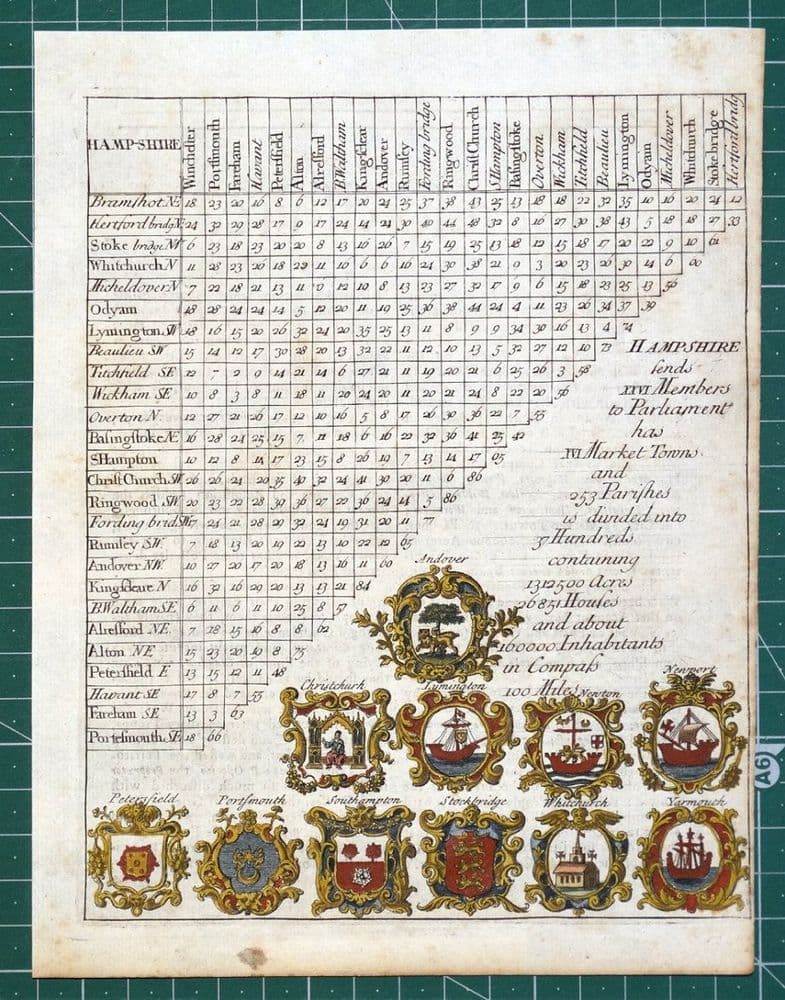 HAMP-SHIRE Winchester Portsmouth Fareham Havant Petersfield Alton Alresford B.Waltham Kingsclear Andover Rumsey Fording bridge Ringwood Christ Church S.Hampton Basingstoke Overton Wickham Titchfield Beaulieu Lymington Odyam Micheldover Whitchurch Stokebridge Hertford bridg
Bramshot NE 18 23 20 16 8 6 12 17 20 24 25 37 38 43 25 13 18 18 22 32 35 10 16 20 24 12
Hertford bridg N 24 32 29 28 17 9 17 24 14 24 30 40 44 48 32 8 16 27 30 38 43 5 18 18 27 33
Stoke bridge NW 6 23 18 23 20 20 8 13 16 26 7 15 19 25 13 18 12 15 18 17 20 22 9 10 61
Whitchurch N 11 28 23 26 18 11 10 6 6 16 24 30 38 21 9 3 20 23 26 30 14 6
Micheldover N 7 22 18 21 13 11 12 10 8 13 23 27 32 17 9 6 15 18 23 25 13 56
Odyam 18 28 24 24 14 5 12 20 11 19 25 36 38 44 24 4 11 23 26 34 37 39
Lymington SW 18 16 15 20 26 32 24 20 35 25 13 11 8 9 9 34 30 16 13 4 74
Beaulieu SW 15 14 12 17 30 28 20 13 32 22 11 12 10 13 5 32 27 12 10 73
Titchfield SE 12 7 2 9 14 21 14 6 27 21 11 19 20 21 6 25 26 3 58
Wickham SE 10 8 3 8 11 18 11 20 24 20 11 20 21 24 8 22 20 56
Overton N. 12 27 21 26 17 12 10 16 5 8 17 26 30 36 22 7 55
Basingstoke NE 16 28 24 25 15 7 11 18 6 16 22 32 36 41 25 42
SHampton 10 12 8 14 17 23 15 8 26 19 7 13 14 17
Christ Church SW 26 26 24 20 35 40 32 24 41 30 20 11 6 86
Ringwood SW 20 23 22 28 39 36 27 22 36 24 14 5 86
Fording brid SW 17 24 21 28 29 32 24 19 31 20 11 77
Rumsey SW. 7 18 13 20 19 22 13 10 22 12 65
Andover NW. 10 27 20 17 20 18 13 16 11 60
Kingscleare N 16 32 16 29 20 13 13 21 84
B.Waltham SE 6 11 6 11 10 25 8 57
Alresford NE. 7 28 15 16 8 8 62
Alton NE 15 23 20 19 8 75
Petersfield E 13 15 12 11 48
Havant SE 17 8 7 55
Fareham SE 13 3 63
Portesmouth SE 18 66
HAMPSHIRE
sends
XXVI Members
to Parliament
has
XVI Market Towns
and
253 Parishes
is divided into
37 Hundreds
containing
1312500 Acres
26851 Houses
and about
160000 Inhabitants
in Compass
100 Miles
Andover
Christchurh Lymington Newton Newport
Petersfield Portsmouth Southampton Stockbridge Whitchurch Yarmouth
A6